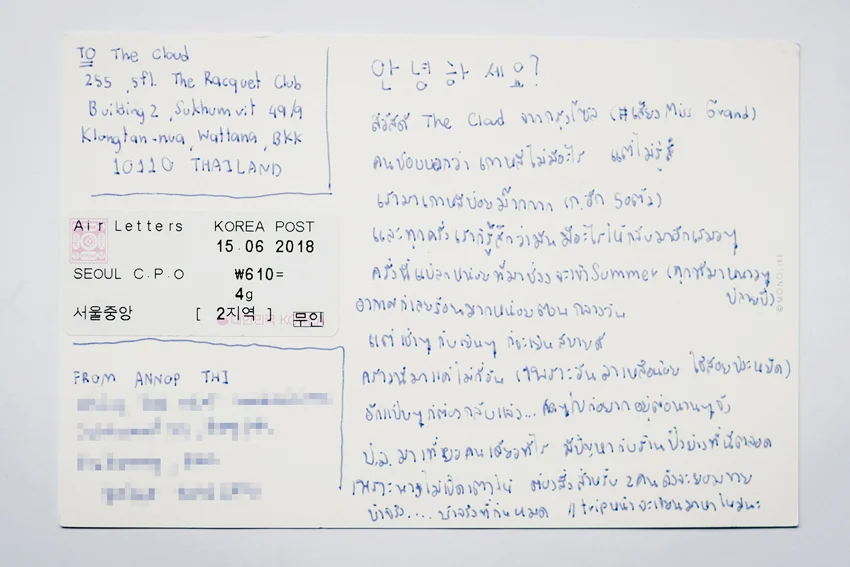 TO The Cloud
255, 5fl. The Racquet Club
Building 2, Sukhumvit 49/9
Klongtan-nua, Wattana, BKK
10110 THAILAND
Air Letters KOREA POST
15.06 2018
SEOUL C.P.O ₩610=
4g
서울중앙 [ 2지역 ] 무인
FROM ANNOP THI
안녕하세요?
สวัสดี The Cloud จากกรุงโซล (#เสียง Miss Grand)
คนชอบบอกว่า เกาหลีไม่มีอะไร แต่ไม่รู้สิ
เรามาเกาหลีบ่อยม๊ากกกก
และทุกครั้งเราก็รู้สึกว่ามันมีอะไรให้กลับมาอีกเสมอๆ
ครั้งนี้แปลกหน่อยที่มาช่วงจะเข้า Summer (ทุกทีมาหนาวๆ
อากาศก็เลยร้อนมากหน่อยตอนกลางวัน
แต่เช้าๆ กับเย็นๆ ก็จะเย็นสบายดี
คราวนี้มาแค่ไม่กี่วัน (เพราะวันลาเหลือน้อย ใช้สอยประหยัด)
อีกแป๊บๆ ก็ต้องกลับแล้ว...
ป.ล. มาเที่ยวคนเดียวทีไร มีปัญหากับร้านปิ้งย่างที่นี่ตลอด
เพราะ ไม่เปิดเตาให้ ต้องสั่งสำหรับ 2 คน ถึงจะยอมขาย
trip หน้าจะเขียนมาหาใหม่นะ
© MONOLIKE